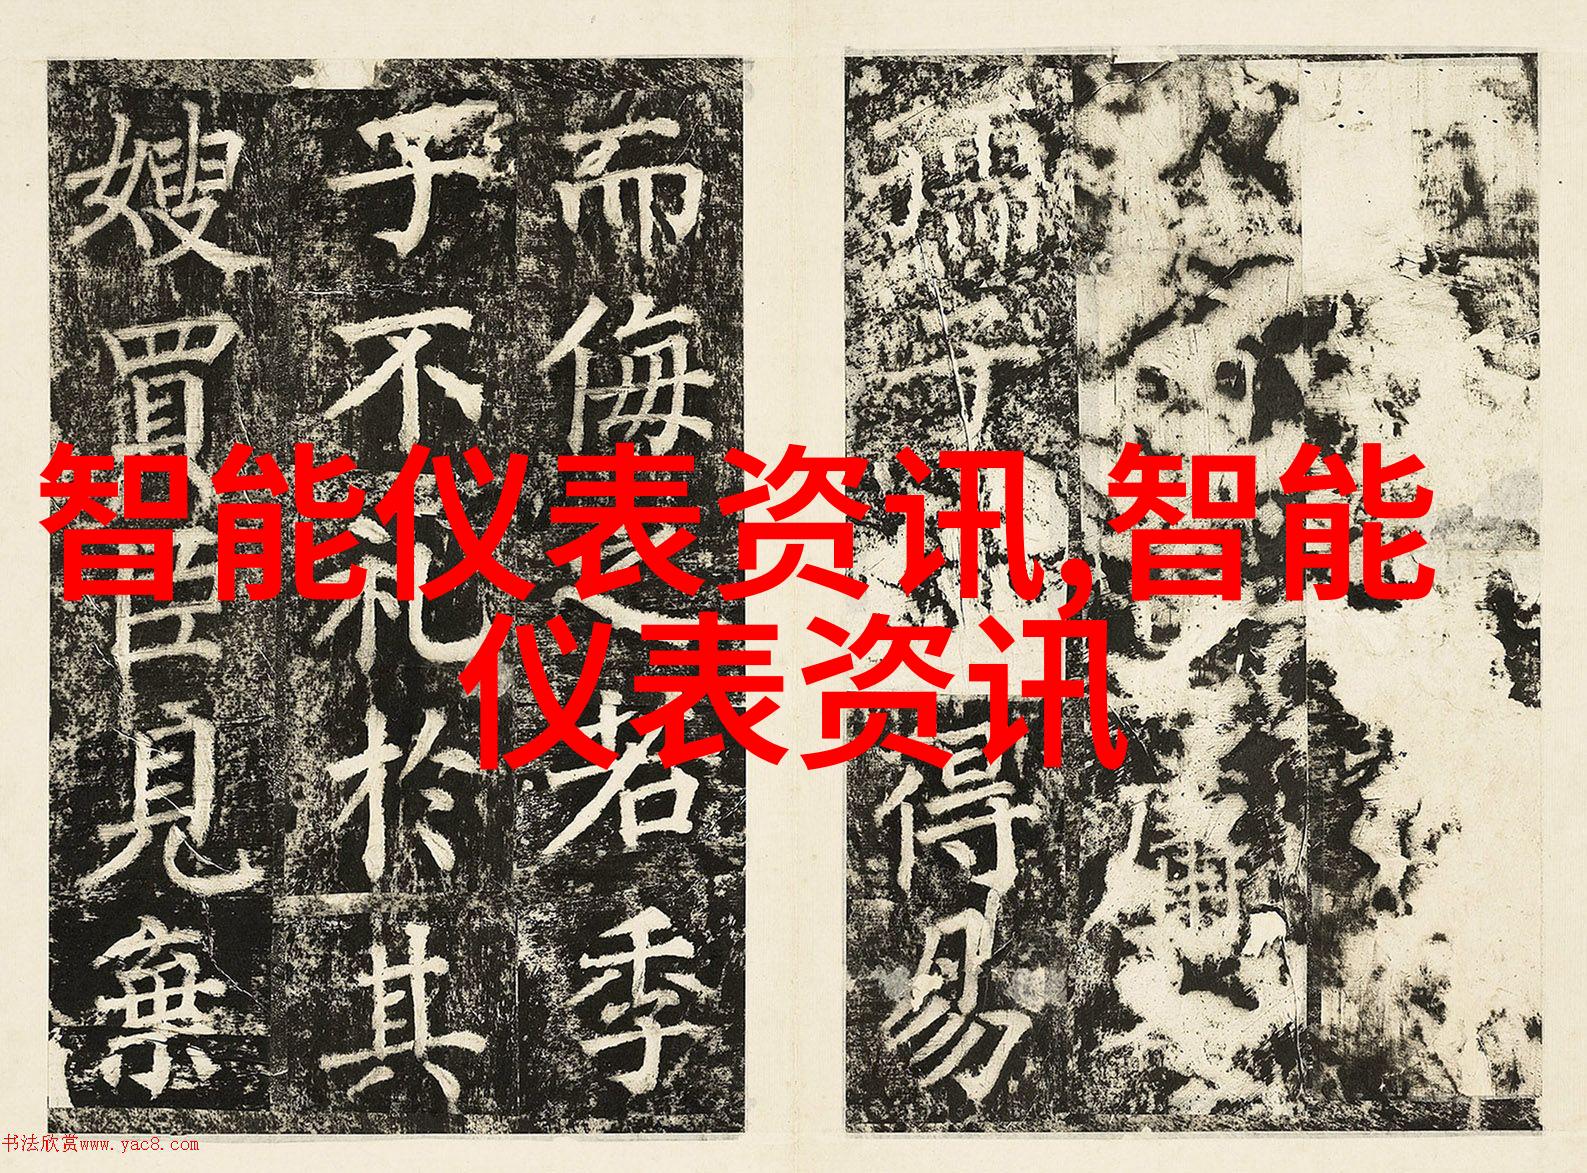 得易
而侮之若季
子不礼於其
嫂買臣見棄
智能仪表资讯,智能
仪表资讯
书法欣赏www.yac8.com